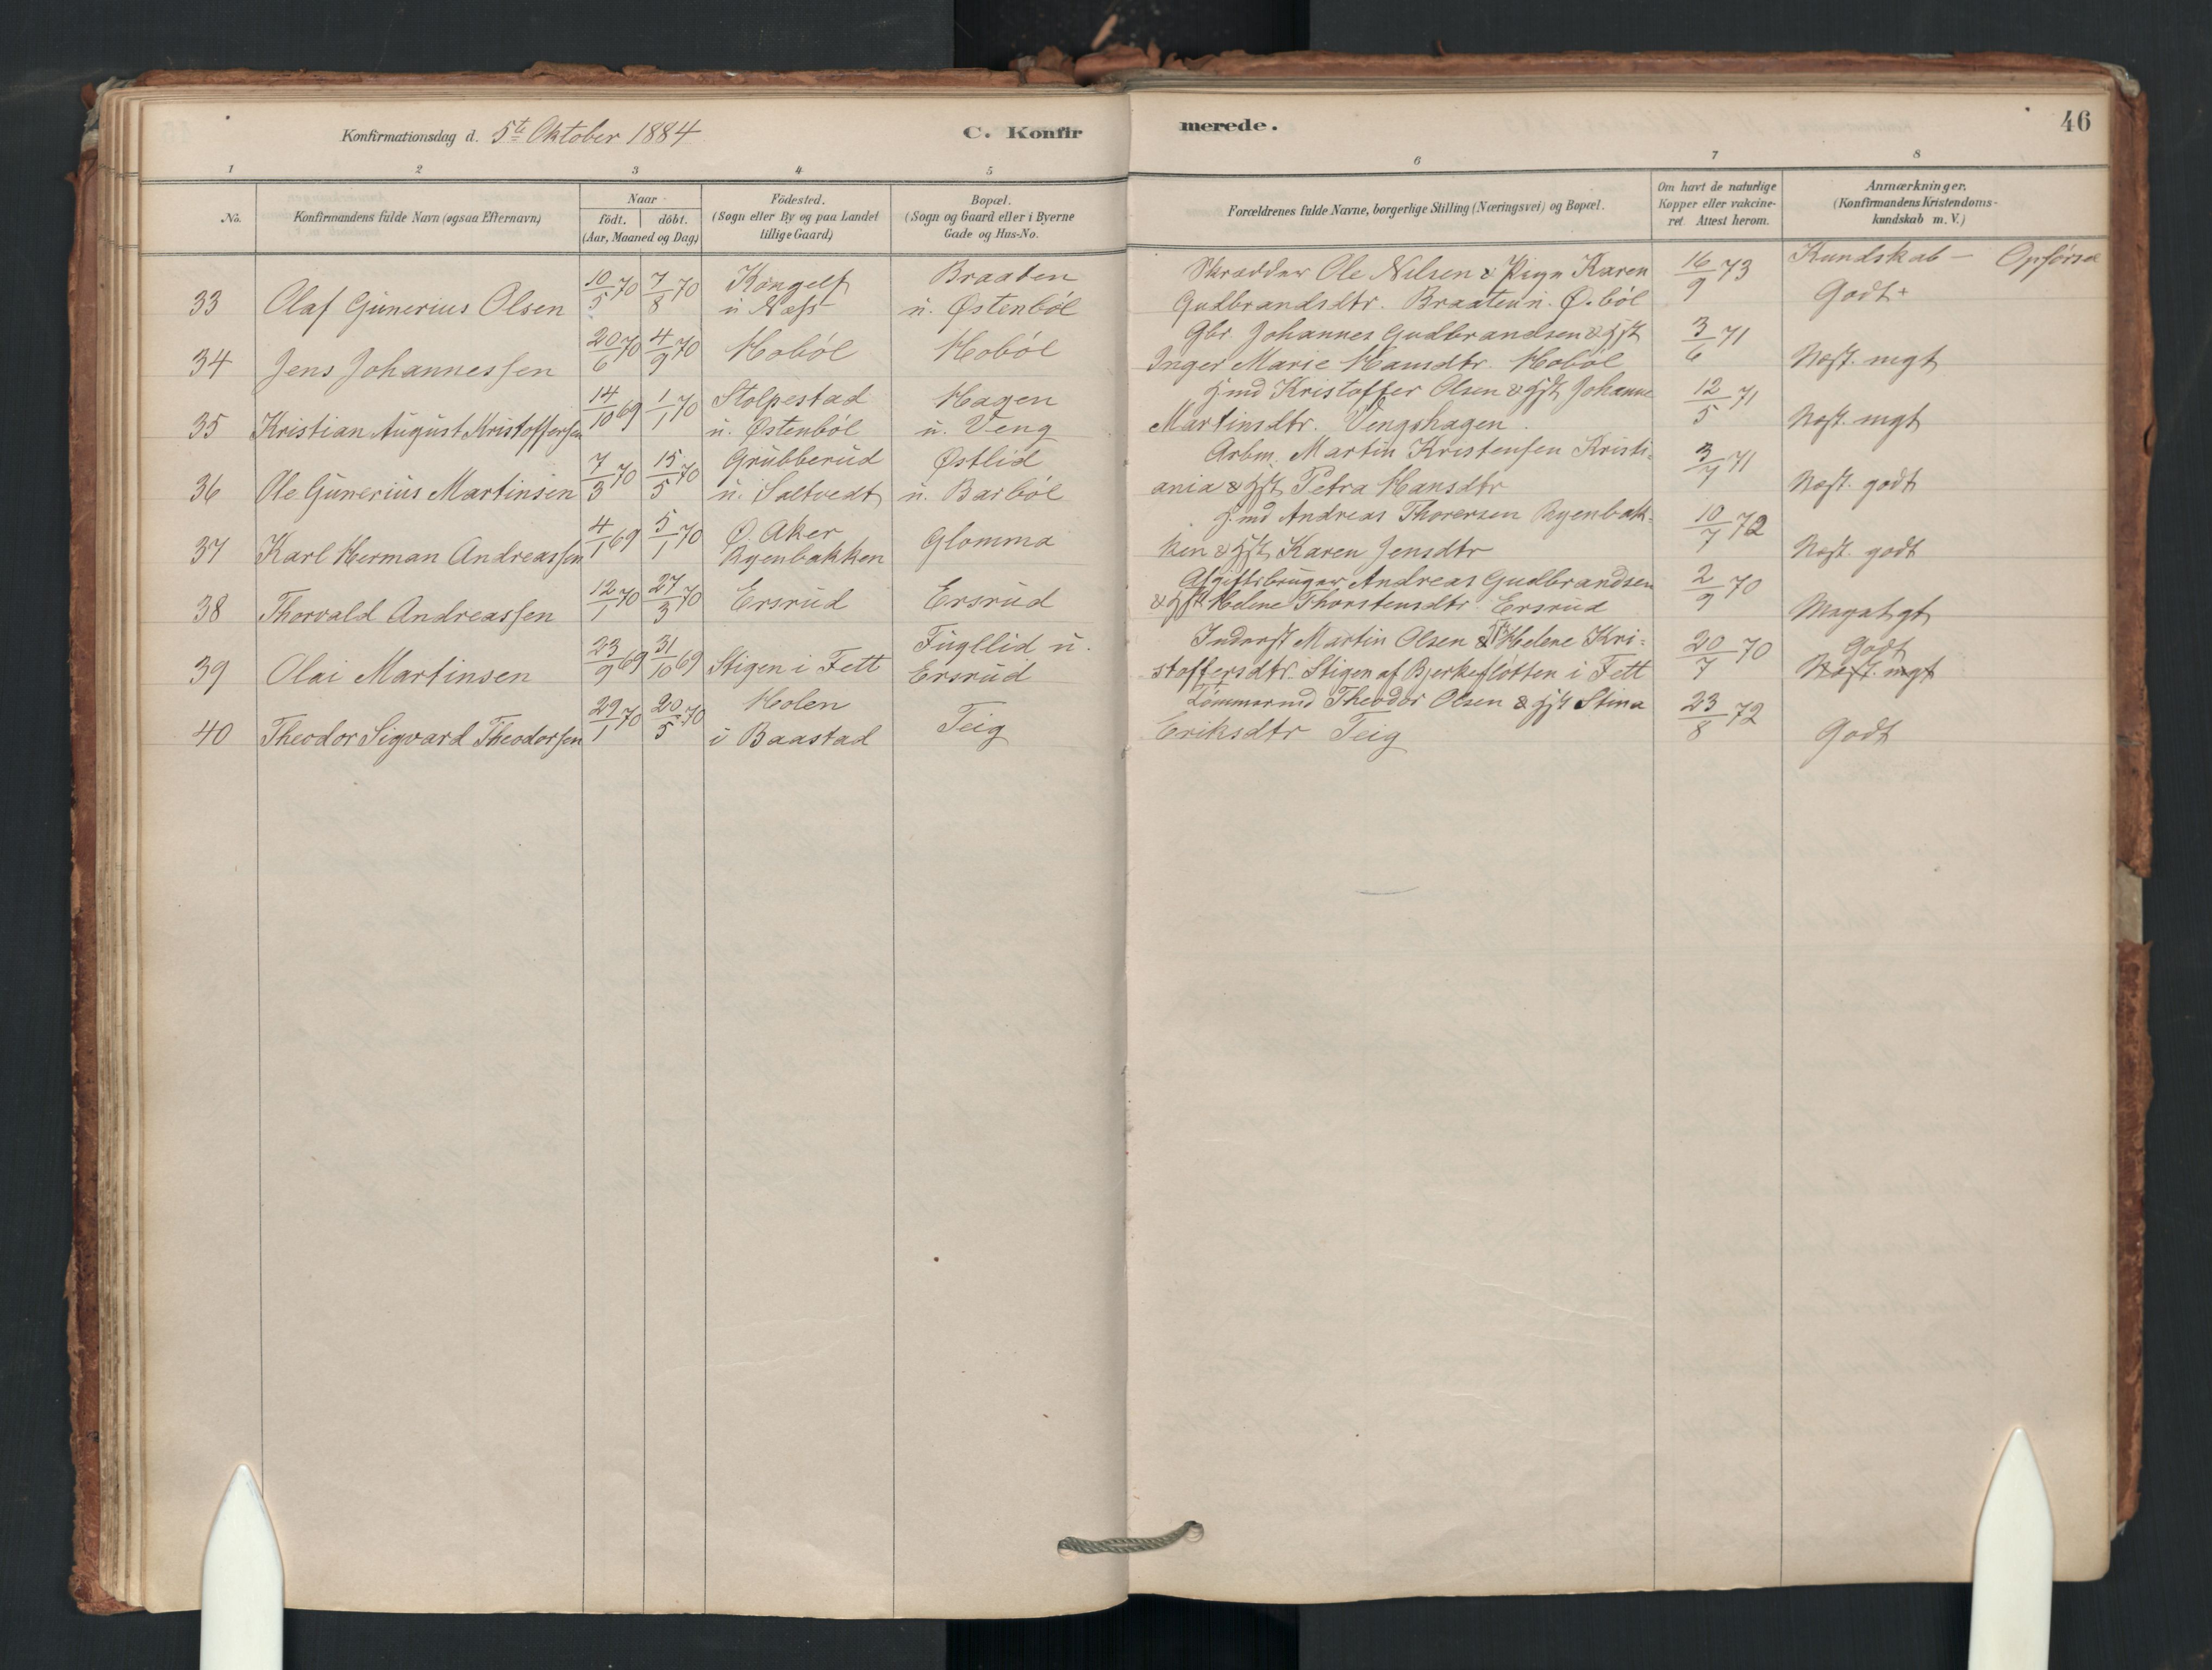 Konfirmationsdag d. 5te Oktober 1884
C. Konfirmerede.
46
1 2 3 4 5 6 7 8
No.
Konfirmandens fulde Navn (ogsaa Efternavn)
Naar
födt. döbt.
(Aar, Maaned og Dag)
Födested.
(Sogn eller By og paa Landet
tillige Gaard)
Bopæl.
(Sogn og Gaard eller i Byerne
Gade og Hus-No.
Forældrenes fulde Navne, borgerlige Stilling (Næringsvei) og Bopæl.
Om havt de naturlige
Kopper eller vakcine-
ret. Attest herom.
Anmærkninger.
(Konfirmandens Kristendoms-
kundskab m. V.)
Kundskab — Opførsel
33 Olaf Gunerius Olsen 10/5 70 7/8 70 Kongelf
u Næs
Braaten
u. Østenböl
Skrædder Ole Nilsen & Pige Karen
Gudbrandsdtr. Braaten u. Ø.böl
16/9 73 Godt+
34 Jens Johannessen 20/6 70 4/9 70 Hoböl Hoböl
Gbr. Johannes Gudbrandsen & Hst
Inger Marie Hansdtr. Hoböl
3/6 71 Næst. mgt
35 Kristian August Kristoffersen 14/10 69 1/1 70 Stolpestad
u. Østenböl
Hagen
u. Veng
Hmd Kristoffer Olsen & Hst Johanne
Martinsdtr. Vengshagen.
12/5 71 Næst. mgt
36 Ole Gunerius Martinsen 7/3 70 15/5 70 Grubberud
u. Saltvedt
Østlid
u. Barböl
Arbm. Martin Kristensen Kristi=
ania & Hst Petra Hansdtr
3/7 71 Næst. godt
37 Karl Herman Andreassen 4/1 69 5/1 70 Ø. Aker
Ryenbakken
Glomma
Hmd Andreas Thorersen Ryenbak=
ken & Hst Karen Jensdtr
10/7 72 Næst. godt
38 Thorvald Andreassen 12/1 70 27/3 70 Ersrud Ersrud
Afgiftsbruger Andreas Gudbrandsen
& Hst Helene Thorstensdtr. Ersrud
2/9 70 Meget gt
39 Olai Martinsen 23/9 69 31/10 69 Stigen i Fett
Fugllid u.
Ersrud
Inderst Martin Olsen & Helene Kri=
stoffersdtr. Stigen af Bjerkeflötten i Fett
20/7 70 Godt
Næst. mgt
40 Theodor Sigvard Theodorsen 29/1 70 20/5 70 Holen
i Baastad
Teig
Tömmermd Theodor Olsen & Hst Stina
Eriksdtr Teig
23/8 72 Godt